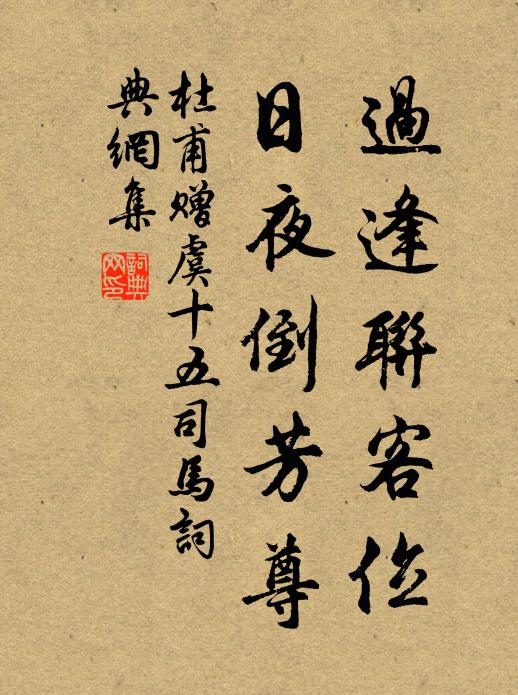 過逢聯客位
日夜倒芳尊
杜甫贈虞十五司馬詞
典網集
詞典網印